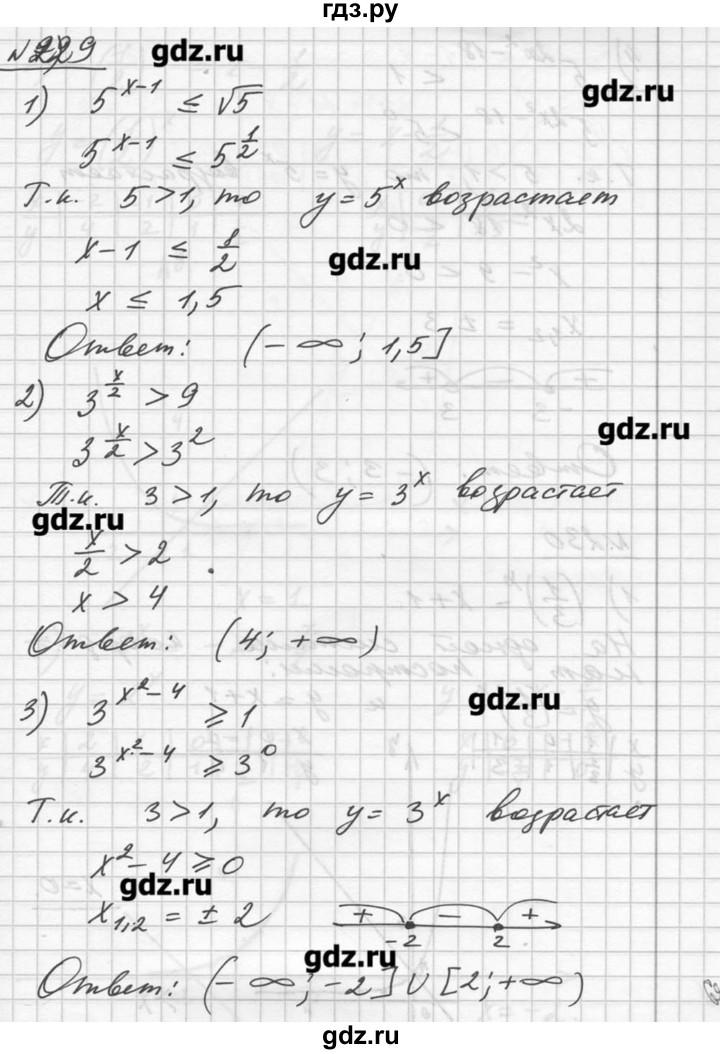 гдз.ру
№229
gdz.ru
gdz.ru
1) 5^(x-1) ≤ √5
5^(x-1) ≤ 5^(1/2)
Т.к. 5>1, то y=5^x возрастает
x-1 ≤ 1/2
gdz.ru
x ≤ 1,5
Ответ: (-∞; 1,5]
2) 3^(x/2) > 9
gdz.ru
3^(x/2) > 3^2
Т.к. 3>1, то y=3^x возрастает
gdz.ru
x/2 > 2
x > 4
Ответ: (4; +∞)
gdz.ru
3) 3^(x²-4) ≥ 1
3^(x²-4) ≥ 3^0
Т.к. 3>1, то y=3^x возрастает
x²-4 ≥ 0
gdz.ru
x₁,₂ = ±2
+ - +
-2 2
gdz.ru
Ответ: (-∞; -2] ∪ [2; +∞)
gdz.ru